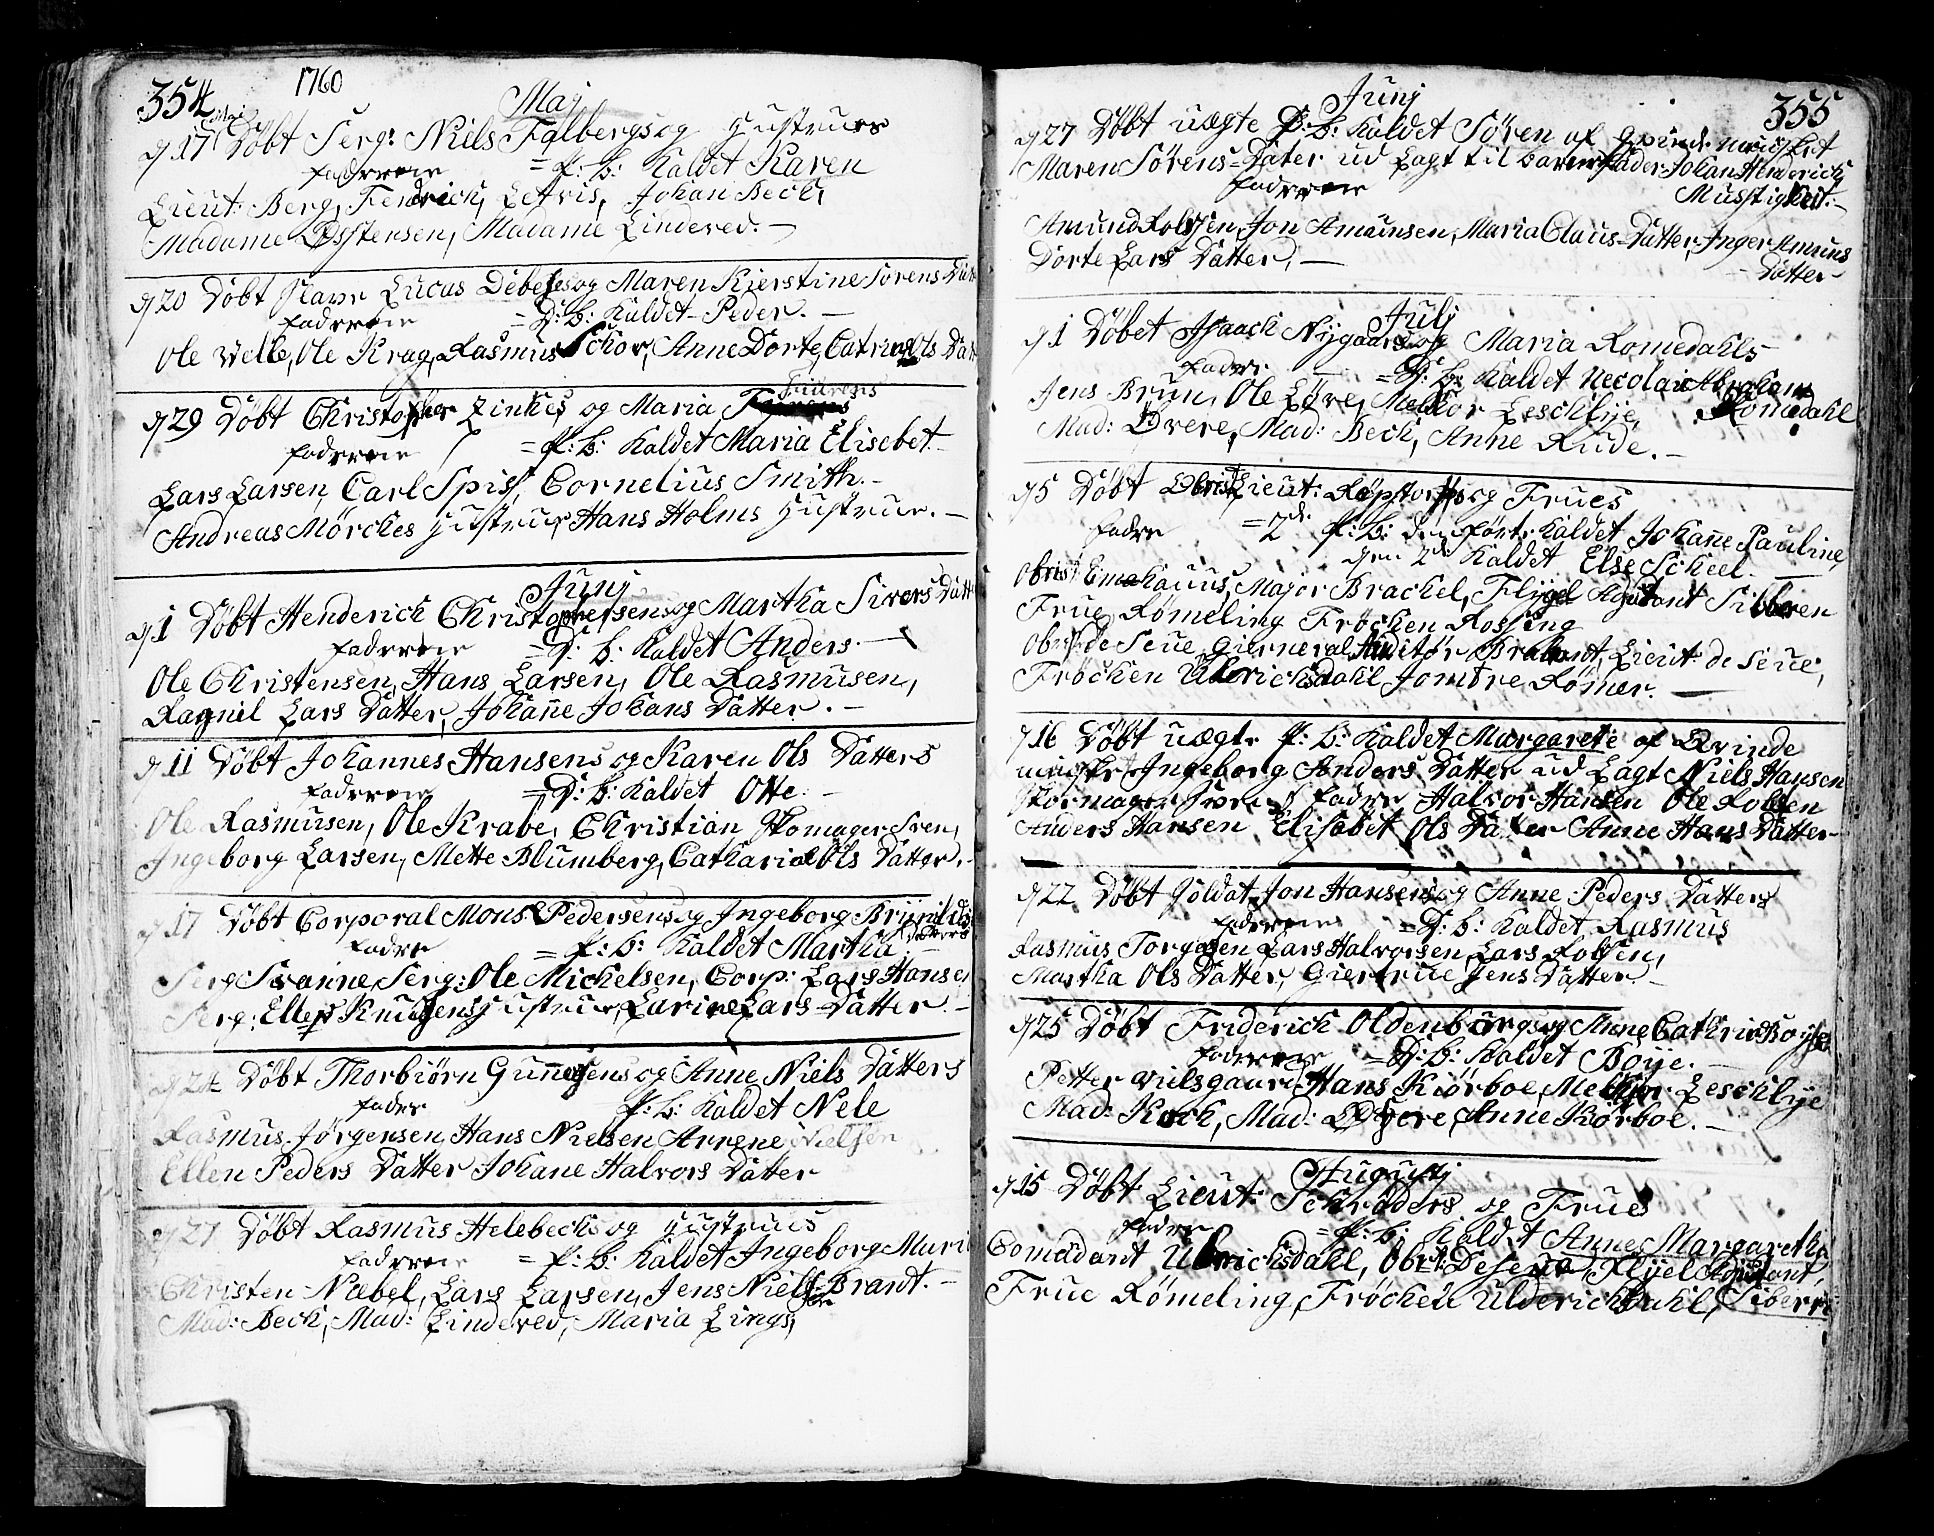 354 1760
Maj
17 Døbt Serg: Niels Falbergs og Hustrues
faderne = P: B: Kaldet Karen
Lieut: Berg, Fendrich, Letvis, Johan Beck,
Madame Østensen, Madame Lindered.
20 Døbt Slave Lucas Debes og Maren Kierstine Sørens Datt
fadrene = D: B: Kaldet Peder.
Ole Velle, Ole Krag, Rasmus Schov, Anne Dorte, Catrina Ols Datt
29 Døbt Christopher Zinkes og Maria
fadrene = P: B: Kaldet Maria Elisebet.
Lars Larsen, Carl Spiss, Cornelius Smith.
Andreas Mörches Hustrue, Hans Holms Hustrue.
Junj
1 Døbt Henderich Christophersens og Martha Sivers Datt
fadrene = D: B: Kaldet Anders.
Ole Christensen, Hans Larsen, Ole Rasmusen,
Ragnil Lars Datter, Johanne Johans Datter.
11 Døbt Johannes Hansens og Karen Ols Datters
fadrene = D: B: Kaldet Otte.
Ole Rasmusen, Ole Krabe, Christian Skomager Sven,
Ingeborg Larsen, Mette Blumberg, Catharina Ols Datter.
17 Døbt Corporal Mons Pedersens og Ingeborg Brynilds
Datters
fadre = P: B: Kaldet Martha
Serg Svanne, Serg: Ole Michelsen, Corp: Lars Hansen
Serg: Ellef Knudsens Hustrue, Larine Lars Datter.
24 Døbt Thorbiørn Gunnersens og Anne Niels Datters
fadre P: B: Kaldet Nele
Rasmus Jørgensen, Hans Nielsen Arrene Nielsen
Ellen Peders Datter Johane Halvors Datter
27 Døbt Rasmus Helebechs og Hustrues
fadrene = P: B: Kaldet Ingeborg Mari
Christen Næbel, Lars Larsen, Jens Niels: Brant.
Mad: Beck, Mad: Lindered, Maria Lings,
355
Junj
27 Døbt uægte D: B: Kaldet Søren af Qvinde mnisket
Maren Sørens-Dater ud Lagt til barnefader Johan Henderich
fadrene Musstigkeit.
Amund Rolfsen, Jon Amunsen, Maria Claus-Datter, Inger Amuns
Datter
Dorte Lars Datter,
Julj
1 Døbet Isaach Nygaars og Maria Romedahls
fadre = D: B: Kaldet Necolai Abraham
Romedahl
Jens Brun, Ole Løvre, Melkior Leschlye,
Mad: Øvere, Mad: Beck, Anne Rude.
5 Døbt Obrist Lieut: Repstorfs og Frues
fadre = 2de P: B: den først Kaldet Johanne Pauline,
den 2de Kaldet Else Scheel.
Obrist Emahauus, Major Brackel, Flygel Adjutant Sibberen
Frue Rømeling Frøcken Rossing
Obrist de Seue, Gierneral Auditør Brabant, Lieut: de Seue,
Frøcken Ulrichsdahl Jomfre Rømer.
16 Døbt uægte P: B: Kaldet Margarete af Qvinde
miniske Ingeborg Anders Datter ud Lagt Niels Hansen
Skomager Sven fadre Halvor Hansen Ole Rolfsen
Anders Hansen Elisabet Ols Datter Anne Hans Datter
22 Døbt Soldat Jon Hansens og Anne Peders Datters
fadrene = D: B: Kaldet Rasmus
Rasmus Torgersen Lars Halvorsen Lars Rolfsen,
Martha Ols Datter, Giertrue Jens Datter.
25 Døbt Friderich Oldenburgs og Anne Cathrine Boyses
fadrene = D: B: Kaldet Boije.
Petter Vielsgaard, Hans Kiørboe, Melkior Leschlye
Mad: Kock, Mad: Øvere, Anne Kørboe.
Augustj
15 Døbt Lieut: Schrøders og Frues
fadre = P: B: Kaldet Anne Margaretha
Comadant Ulrichsdahl, Obrst: Deseue, Flyel Adjutant
Frue Rømeling, Frøcken Ulderichsdahl, Siberrn